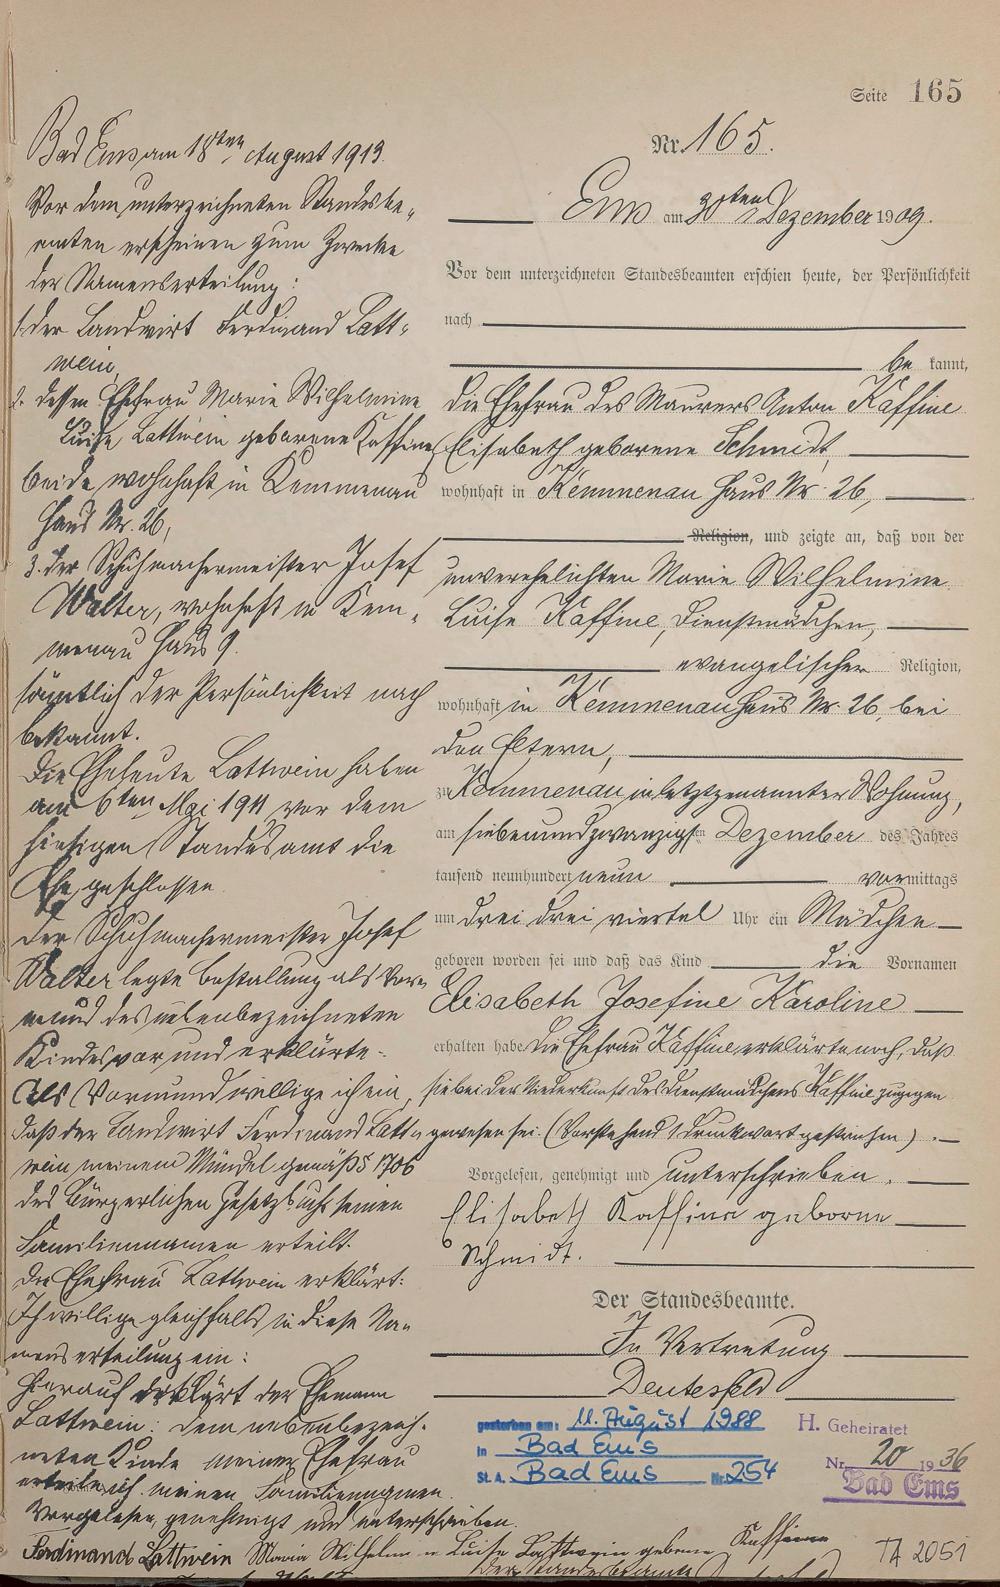 Seite 165
Nr. 165.
Ems am 30ten Dezember 1909.
Vor dem unterzeichneten Standesbeamten erschien heute, der Persönlichkeit
nach
be kannt,
die Ehefrau des Maurers Anton Kaffine
Elisabeth geborene Schmidt,
wohnhaft in Kemmenau Haus Nr. 26,
Religion, und zeigte an, daß von der
unverehelichten Marie Wilhelmine
Luise Kaffine, Dienstmädchen,
evangelischer Religion,
wohnhaft in Kemmenau Haus Nr. 26, bei
den Eltern,
zu Kemmenau in letztgenannter Wohnung,
am siebenundzwanzigsten Dezember des Jahres
tausend neunhundert neun vormittags
um drei drei viertel Uhr ein Mädchen
geboren worden sei und daß das Kind die Vornamen
Elisabeth Josefine Karoline
erhalten habe. Die Ehefrau Kaffine erklärte noch, daß
sie bei der Niederkunft des Dienstmädchens Kaffine zugegen
gewesen sei. (Vorstehend 1 Druckwort gestrichen).
Vorgelesen, genehmigt und unterschrieben.
Elisabeth Kaffine geborne
Schmidt.
Der Standesbeamte.
In Vertretung
Deutesfeld
Bad Ems am 18ten August 1913.
Vor dem unterzeichneten Standesbe-
amten erscheinen zum Zwecke
der Namenserteilung:
1. der Landwirt Ferdinand Latt-
wein,
2. dessen Ehefrau Marie Wilhelmine
Luise Lattwein geborene Kaffine,
beide wohnhaft in Kemmenau
Haus Nr. 26,
3. der Schuhmachermeister Josef
Walter, wohnhaft in Kem-
menau Haus 9.
sämtlich der Persönlichkeit nach
bekannt.
Die Eheleute Lattwein haben
am 6ten Mai 1911 vor dem
hiesigen Standesamt die
Ehe geschlossen.
Der Schuhmachermeister Josef
Walter legte Bestallung als Vor-
mund des nebenbezeichneten
Kindes vor und erklärte:
Als Vormund willige ich ein,
daß der Landwirt Ferdinand Latt-
wein meinem Mündel gemäß § 1706
des Bürgerlichen Gesetzbuchs seinen
Familiennamen erteilt.
Die Ehefrau Lattwein erklärt:
Ich willige gleichfalls in diese Na-
menserteilung ein:
Hierauf erklärt der Ehemann
Lattwein: dem nebenbezeich-
neten Kinde meiner Ehefrau
erteile ich meinen Familiennamen.
Vorgelesen, genehmigt und unterschrieben.
Ferdinand Lattwein Maria Wilhelmine Luise Lattwein geborene Kaffine
Der Standesbeamte
gestorben am: 11. August 1988
in Bad Ems
St. A. Bad Ems Nr. 254
H. Geheiratet
Nr. 20 1936
Bad Ems
TA 2051